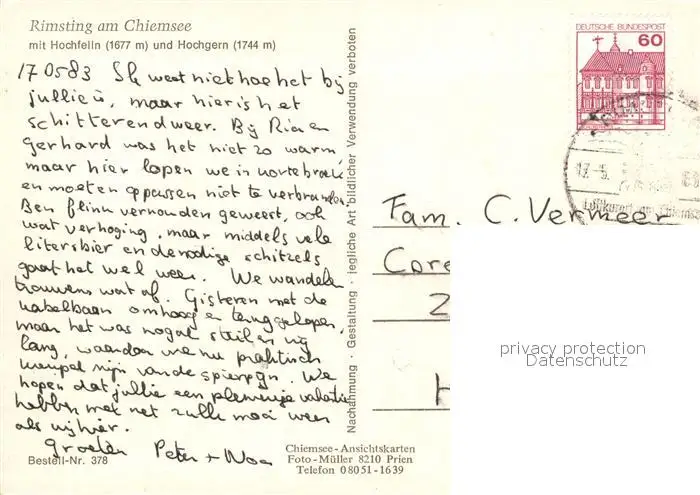 Rimsting am Chiemsee
mit Hochfelln (1677 m) und Hochgern (1744 m)
170583 Ik weet niet hoe het bij
jullie is, maar hier is het
schitterend weer. Bij Ria en
Gerhard was het niet zo warm
maar hier lopen we in korte broek
en moeten oppassen niet te verbranden
Ben flink verkouden geweest, ook
wat verhoging, maar middels vele
liters bier en de nodige schnitzels
gaat het wel weer. We wandelen
trouwens wat af. Gisteren met de
kabelbaan omhoog en teruggelopen,
maar het was nogal steil en vrij
lang, waardoor we nu praktisch
kreupel zijn van de spierpijn. We
hopen dat jullie een plezierige vakantie
hebben met net zulk mooi weer
als wij hier.
Groeten Peter +
Bestell-Nr. 378
Chiemsee-Ansichtskarten
Foto-Müller 8210 Prien
Telefon 08051-1639
Nachahmung · Gestaltung · jegliche Art bildlicher Verwendung verboten
DEUTSCHE BUNDESPOST
60
17.-5.
Luftkurort am Chiemsee
Fam. C. Vermeer
Core
Z
H
privacy protection
Datenschutz